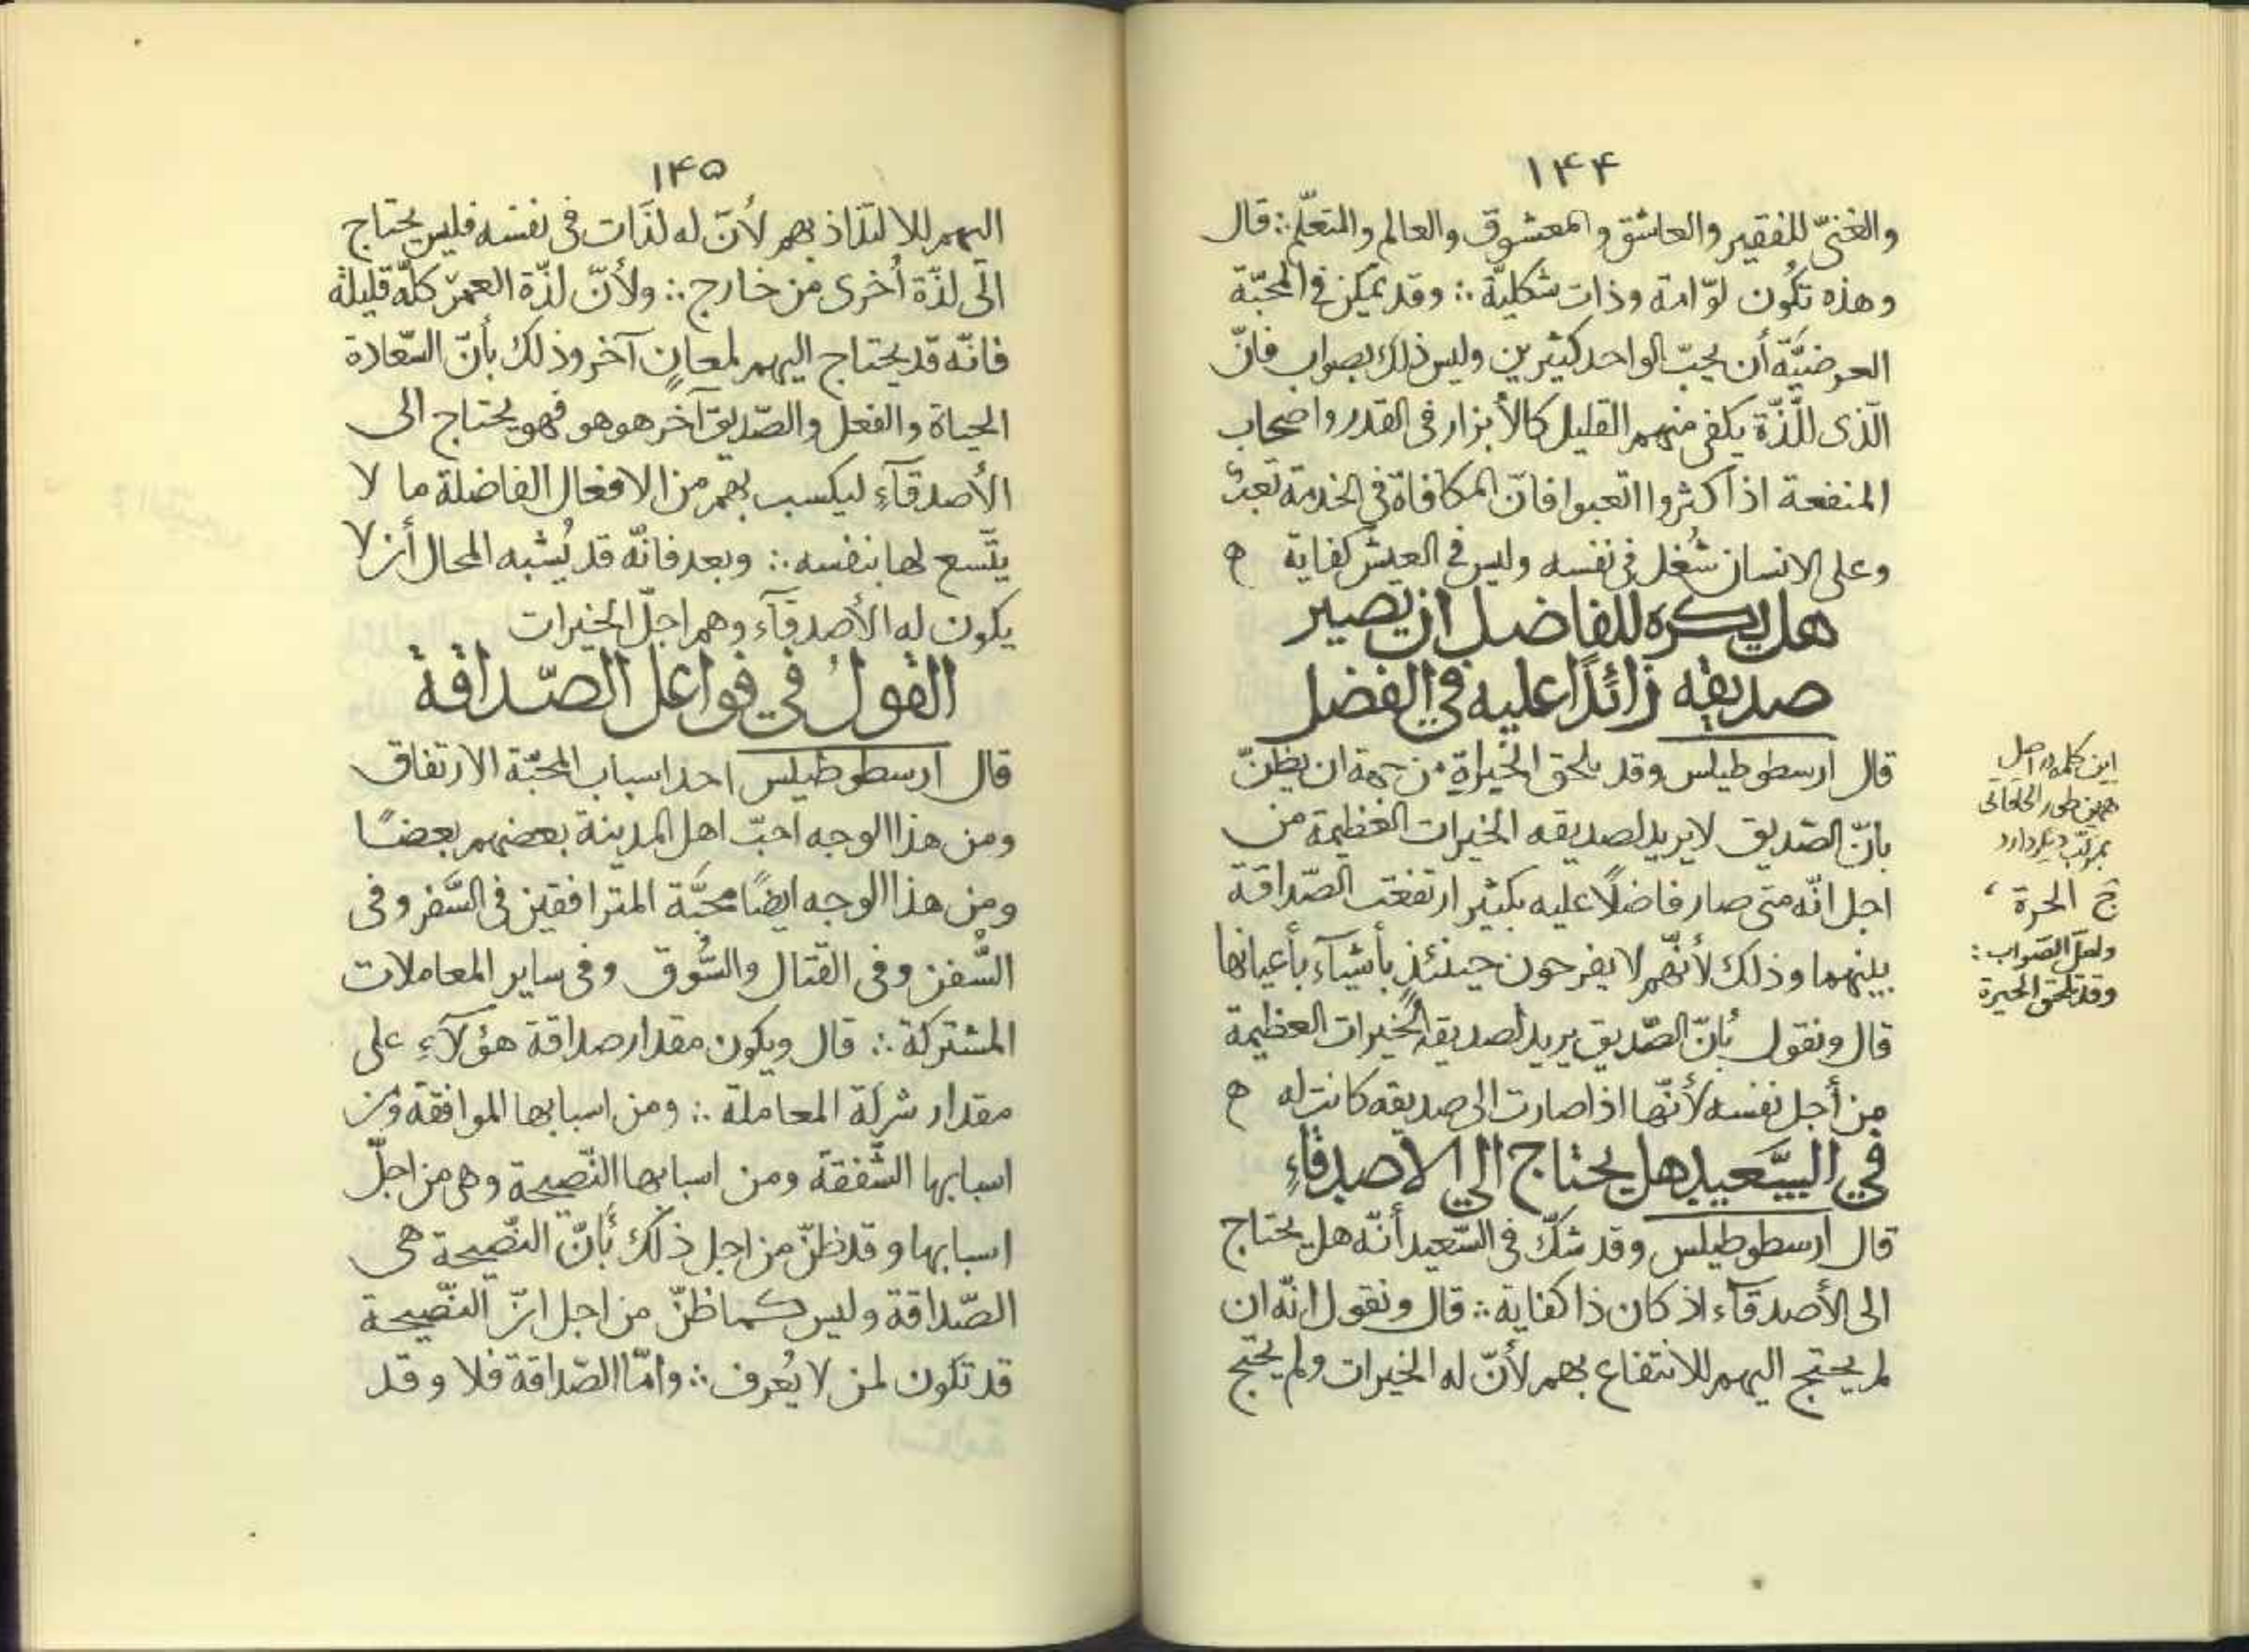 ۱۴۴
والغنىّ للفقير والعاشق والمعشوق والعالم والمتعلّم ∴ قال
وهذه تكُون لوّامة وذات شكليّة ∴ وقد يمكن فى المحبّة
العرضيَّة أن يحبّ الواحد كثيرين وليس ذلك بصواب فانّ
الّذى للّذّة يكفى منهم القليل كالأبزار فى القدر واصحاب
المنفعة اذا كثروا اتعبوا فانّ المكافاة فى الخدمة تعب
وعلى الانسان شُغل فى نفسه وليس فى العيش كفاية ه
هل يكره للفاضل ان يصير
صديقه زائدًا عليه في الفضل
قال ارسطوطيلس وقد يلحق الخيراة من جهة ان يظنّ
بانّ الصّديق لا يريد لصديقه الخيرات العظيمة من
اجل انّه متى صار فاضلًا عليه بكثير ارتفعت الصّداقة
بينهما وذلك لأنّهم لا يفرحون حينئذٍ بأشيآء بأعيانها
قال ونقول بُانّ الصّديق يريد لصديقه الخيرات العظيمة
من أجل نفسه لأنّها اذا صارت الى صديقه كانت له ه
في السَّعيد هل يحتاج الى الاصدقاءِ
قال ارسطوطيلس وقد شكّ فى السّعيد أنّه هل يحتاج
الى الأصدقآء اذ كان ذا كفاية ∴ قال ونقول انّه ان
لم يحتج اليهم للانتفاع بهم لأنّ له الخيرات ولم يحتج
اين كلمه در اصل
همين طور الحاقاتى
بمركّب ديگر دارد
ج الحرة ،
ولعلّ الصّواب :
وقد تلحق الحيرة
۱۴۵
اليهم للالتذاذ بهم لأنّ له لذّات فى نفسه فليس يحتاج
الى لذّة أُخرى من خارج ∴ ولأنّ لذّة العمر كلّه قليلة
فانّه قد يحتاج اليهم لمعانٍ آخر وذلك بأنّ السّعادة
الحياة والفعل والصّديق آخر هو هو فهو يحتاج الى
الأصدقآءِ ليكسب بهم من الافعال الفاضلة ما لا
يتّسع لها بنفسه ∴ وبعد فانّه قد يُشبه المحال أن لا
يكون له الأصدقآء وهم اجلّ الخيرات
القول في فواعل الصّداقة
قال ارسطوطيلس احد اسباب المحبّة الارتفاق
ومن هذا الوجه احبّ اهل المدينة بعضهم بعضًا
ومن هذا الوجه ايضًا محبَّة المترافقين فى السَّفر وفى
السُّفن وفى القتال والسُّوق وفى ساير المعاملات
المشتركة ∴ قال ويكون مقدار صداقة هؤلآءِ على
مقدار شركة المعاملة ∴ ومن اسبابها الموافقة ومن
اسبابها الشَّفقة ومن اسبابها النّصيحة وهى من اجلّ
اسبابها وقد ظنّ من اجل ذلك بُأنّ النّصيحة هى
الصّداقة وليس كما ظنّ من اجل انّ النّصيحة
قد تكون لمن لا يُعرف ∴ وامّا الصّداقة فلا وقد